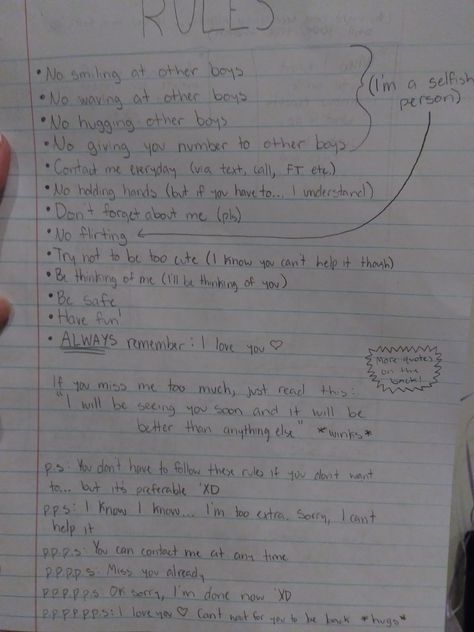 RULES
• No smiling at other boys
• No waving at other boys
• No hugging other boys
• No giving you number to other boys
(I'm a selfish
person)
• Contact me everyday (via text, call, FT etc.)
• No holding hands (but if you have to... I understand)
• Don't forget about me (pls)
• No flirting
• Try not to be too cute (I know you can't help it though)
• Be thinking of me (I'll be thinking of you)
• Be safe
• Have fun!
• ALWAYS remember: I love you ♡
More quotes
on the
back!
If you miss me too much, just read this:
"I will be seeing you soon and it will be
better than anything else" *winks*
p.s: You don't have to follow these rules if you don't want
to... but it's preferable 'XD
p.p.s: I know I know... I'm too extra. Sorry, I can't
help it
p.p.p.s: You can contact me at any time
p.p.p.p.s: Miss you already
p.p.p.p.p.s: Ok sorry, I'm done now 'XD
p.p.p.p.p.p.s: I love you ♡ Can't wait for you to be back *hugs*